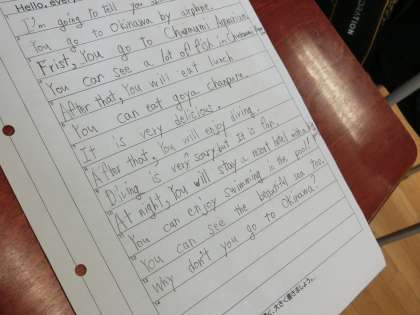 Hello, every
I'm going to tell you
You go to Okinawa by airplane.
Frist, You go to Churaumi Aquarium.
You can see a lot of fish in Churaumi
After that, You will eat lunch.
You can eat goya chanpuru.
It is very delicious.
After that, You will enjoy diving.
Diving is very scary but It is fun.
At night, You will stay a resort hotel with
You can enjoy swimming in the pool!
You can see the beautiful sea too.
Why don't you go to Okinawa?
大きく書きましょう。